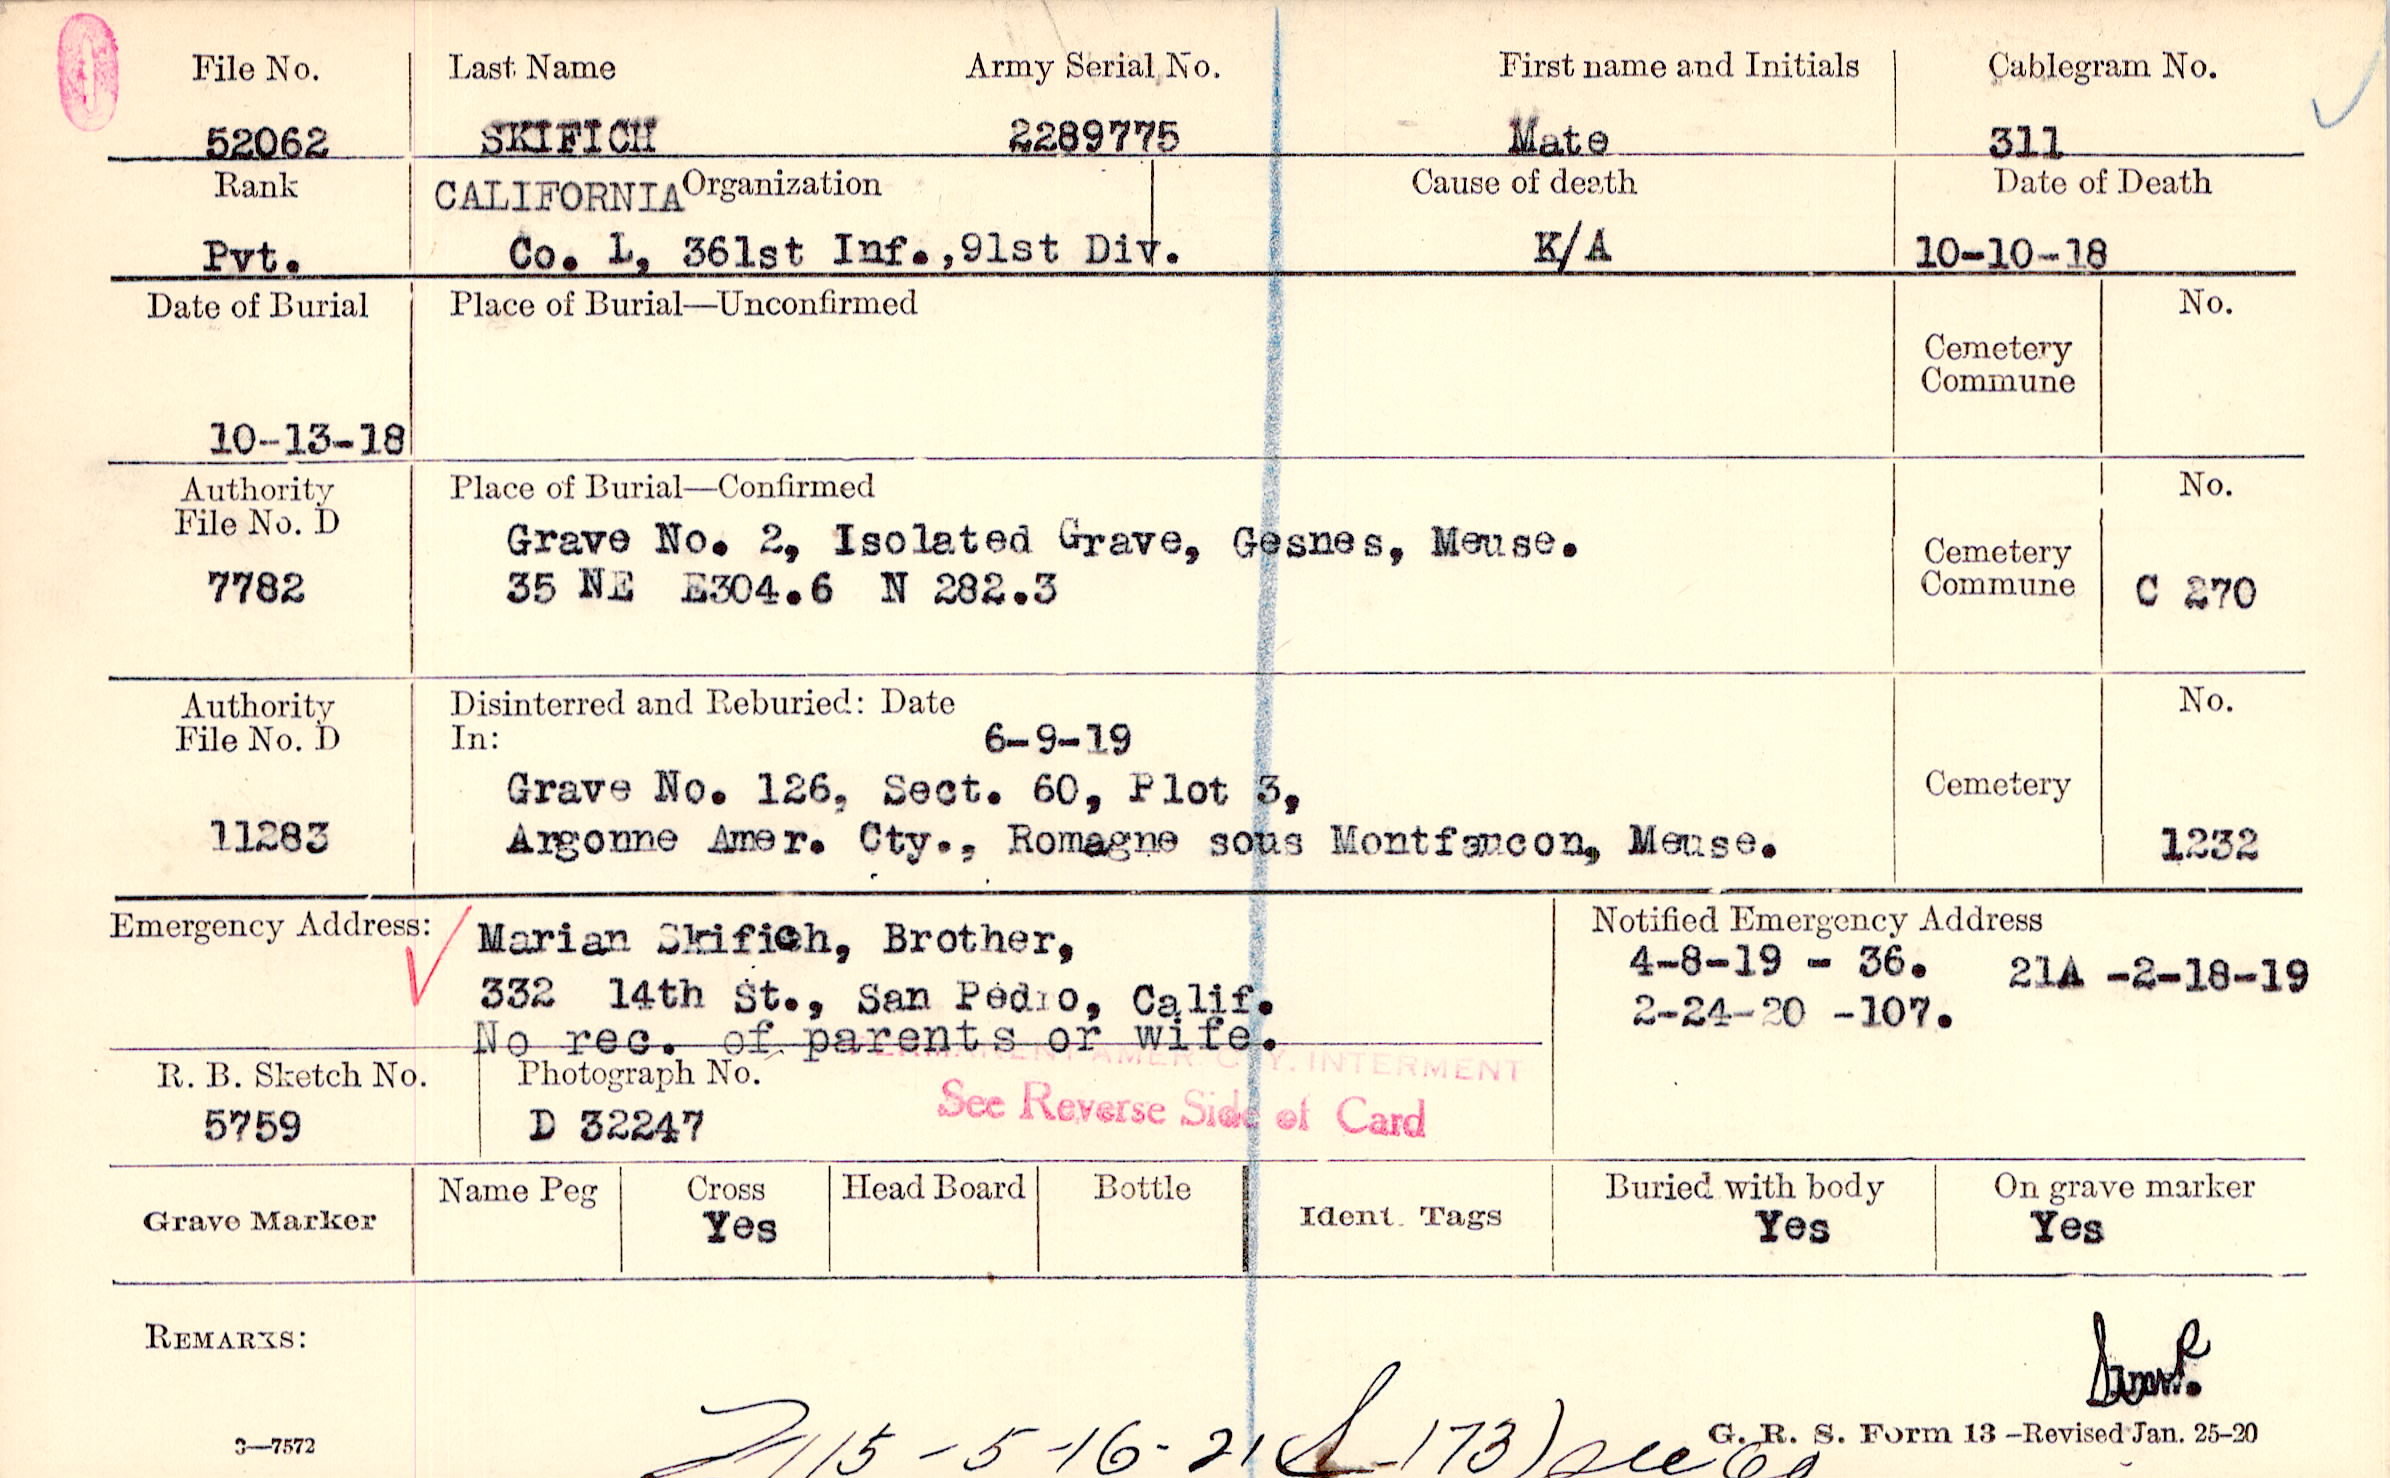 File No. Last Name Army Serial No. First name and Initials Cablegram No.
52062 SKIFICH 2289775 Mate 311
Rank CALIFORNIA Organization Cause of death Date of Death
Pvt. Co. L, 361st Inf.,91st Div. K/A 10-10-18
Date of Burial Place of Burial—Unconfirmed No.
Cemetery
Commune
10-13-18
Authority Place of Burial—Confirmed No.
File No. D Grave No. 2, Isolated Grave, Gesnes, Meuse. Cemetery
7782 35 NE E304.6 N 282.3 Commune C 270
Authority Disinterred and Reburied: Date No.
File No. D In: 6-9-19
Grave No. 126, Sect. 60, Plot 3, Cemetery
11283 Argonne Amer. Cty., Romagne sous Montfaucon, Meuse. 1232
Emergency Address: Marian Skifich, Brother, Notified Emergency Address
332 14th St., San Pedro, Calif. 4-8-19 - 36. 21A -2-18-19
No rec. of parents or wife. 2-24-20 -107.
PERMANENT AMER CTY. INTERMENT
R. B. Sketch No. Photograph No. See Reverse Side of Card
5759 D 32247
Grave Marker Name Peg Cross Head Board Bottle Ident. Tags Buried with body On grave marker
Yes Yes Yes
REMARKS:
3—7572 G. R. S. Form 13 —Revised Jan. 25-20
5-16-21 173) see